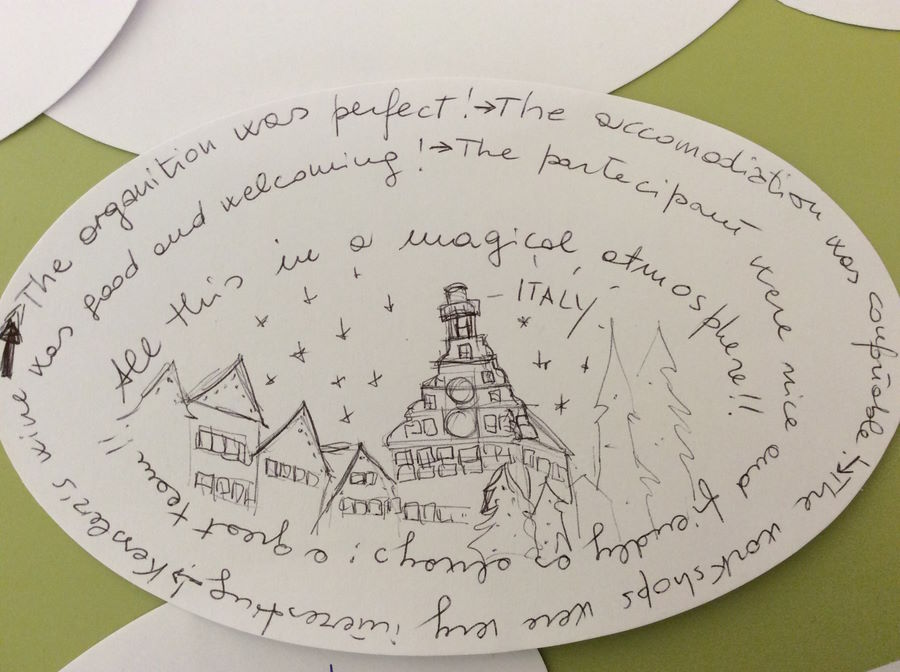 →The organition was perfect!→The accomodiation was
→The workshops were very interesting→Kessler's wine was good and welcoming!→The partecipant were nice and friendly as always: a great team!!
All this in a magical atmosphere!!
- ITALY